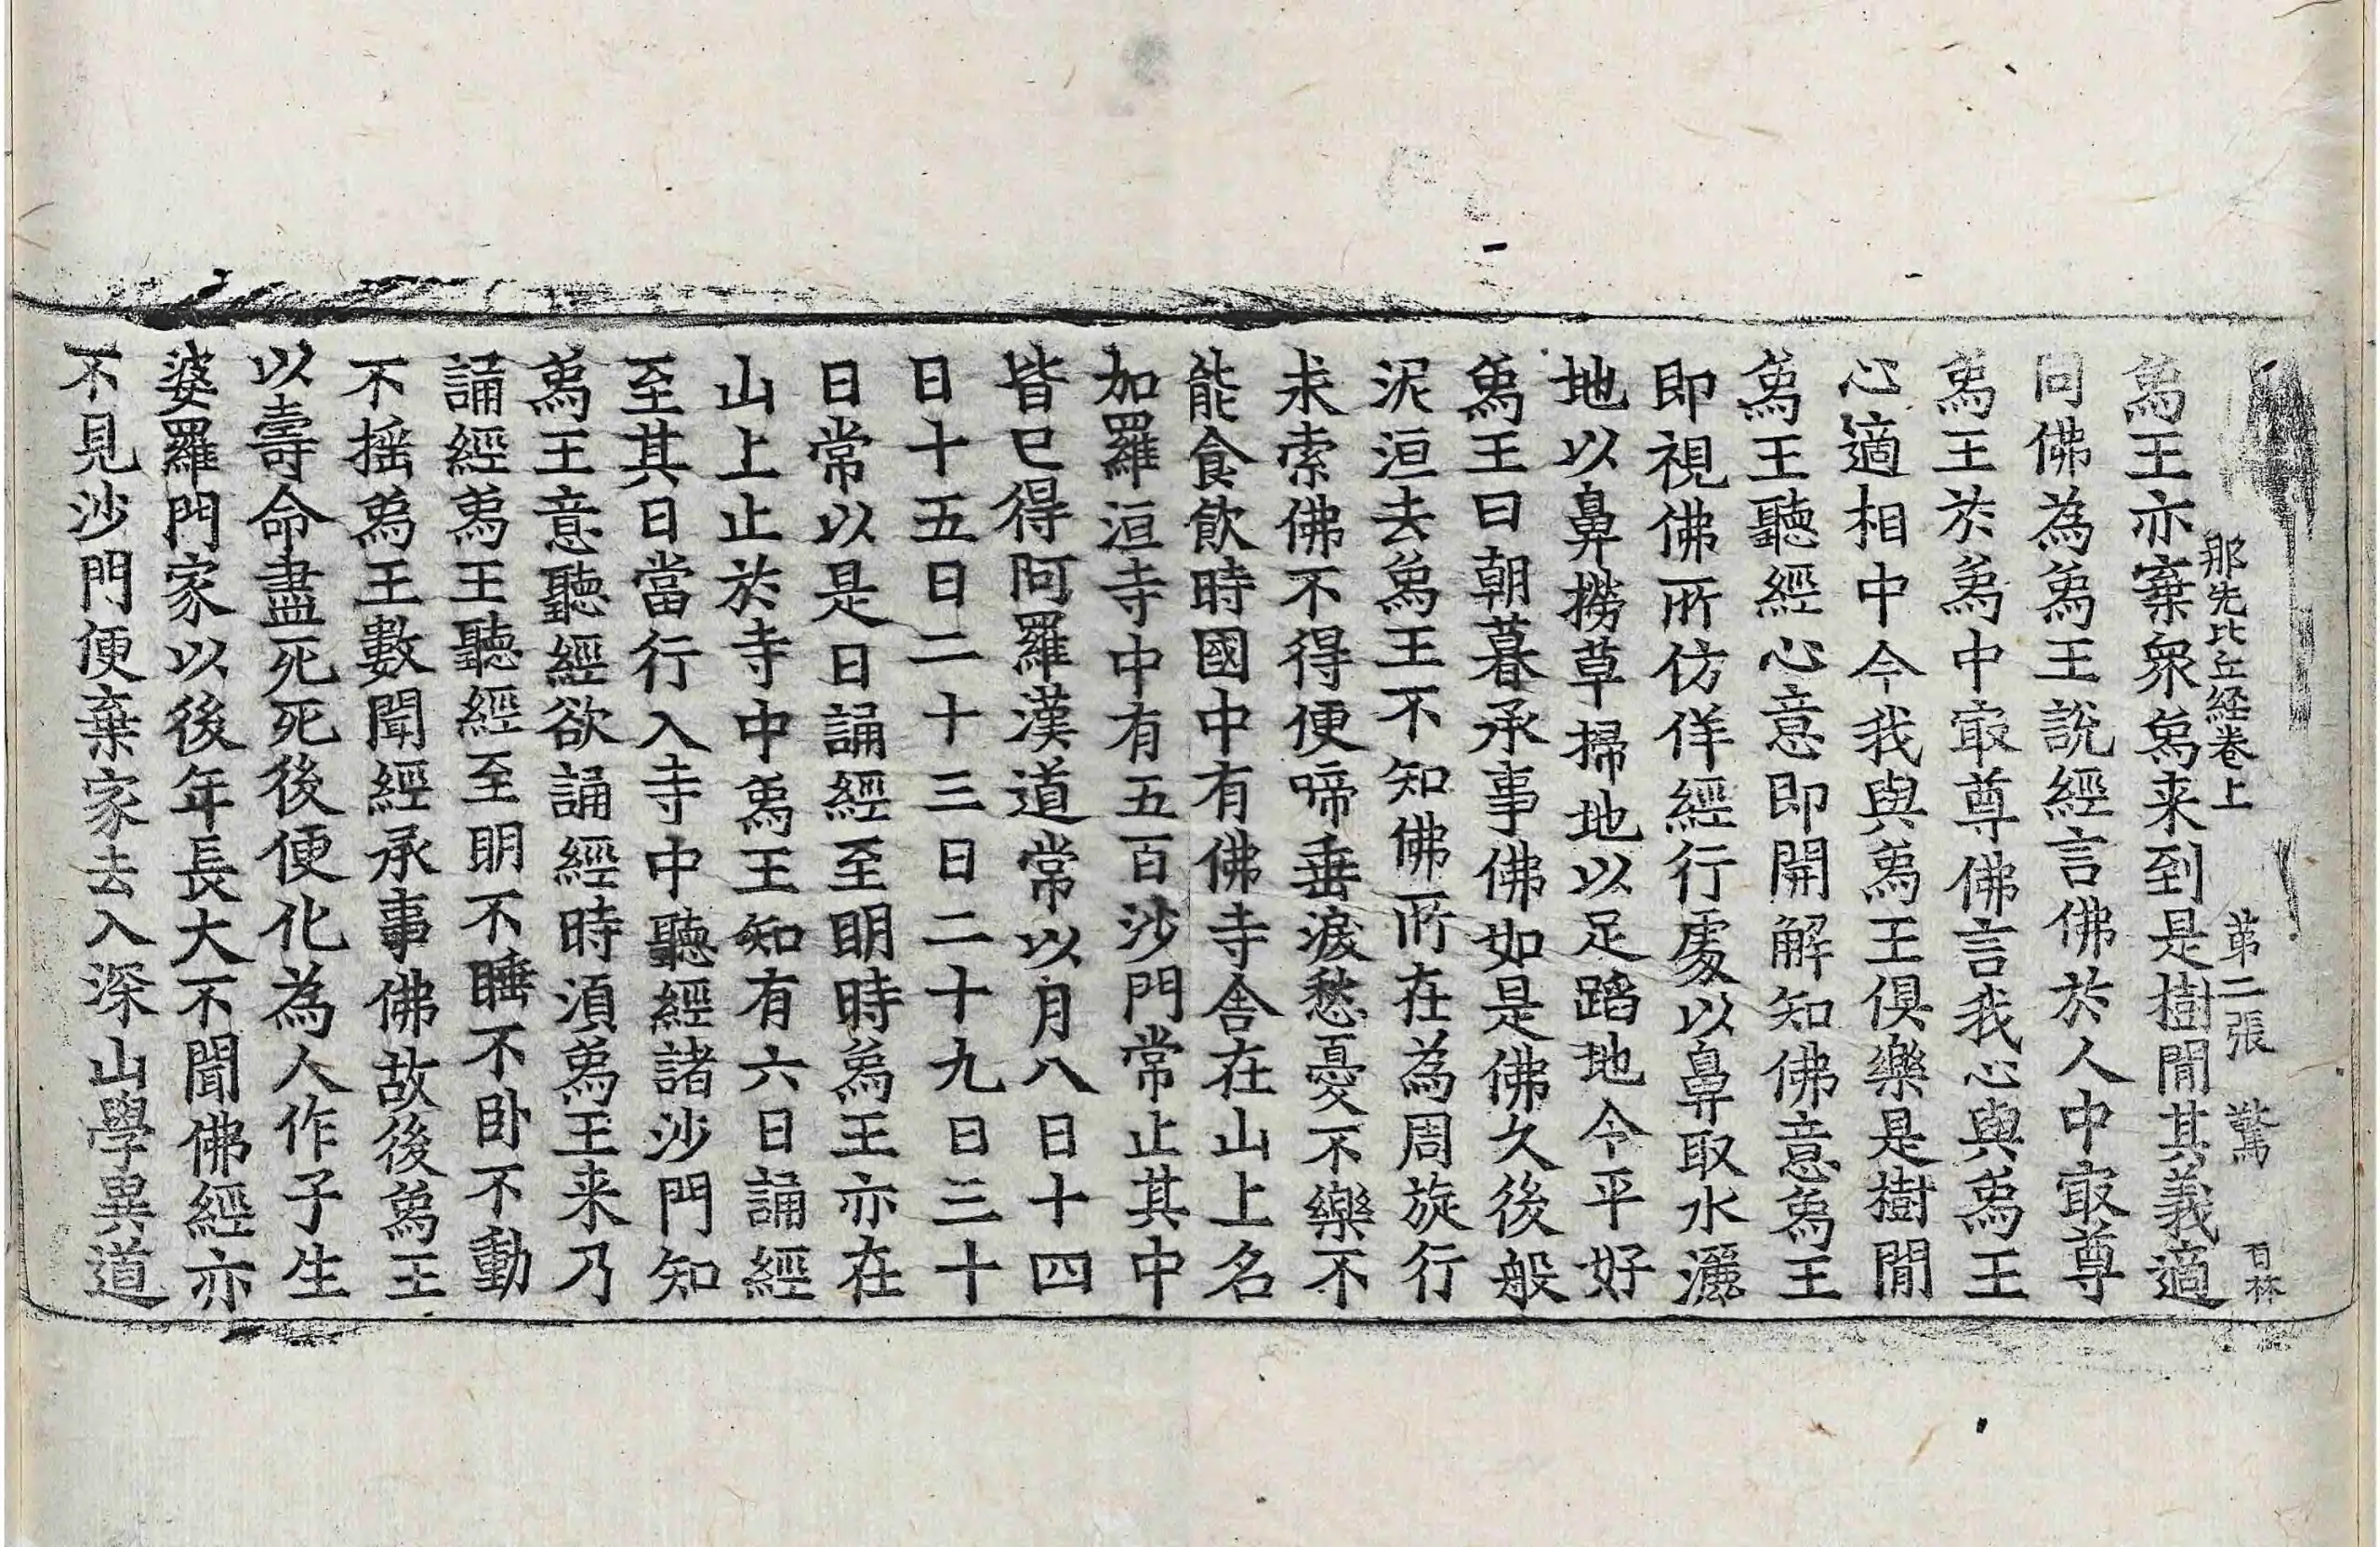 那先比丘経卷上 苐二張 驚 百林
爲王亦棄衆爲来到是樹閒其義適
同佛為爲王說經言佛於人中㝡尊
爲王於爲中㝡尊佛言我心與爲王
心適相中今我與爲王俱樂是樹閒
爲王聽經心意即開解知佛意爲王
即視佛所仿佯經行處以鼻取水灑
地以鼻撈草掃地以足蹈地令平好
爲王日朝暮承事佛如是佛久後般
泥洹去爲王不知佛所在為周旋行
求索佛不得便啼垂淚愁憂不樂不
能食飲時國中有佛寺舍在山上名
加羅洹寺中有五百沙門常止其中
皆已得阿羅漢道常以月八日十四
日十五日二十三日二十九日三十
日常以是日誦經至明時爲王亦在
山上止於寺中爲王知有六日誦經
至其日當行入寺中聽經諸沙門知
爲王意聽經欲誦經時湏爲王来乃
誦經爲王聽經至明不睡不卧不動
不揺爲王數聞經承事佛故後爲王
以壽命盡死死後便化為人作子生
婆羅門家以後年長大不聞佛經亦
不見沙門便棄家去入深山學異道